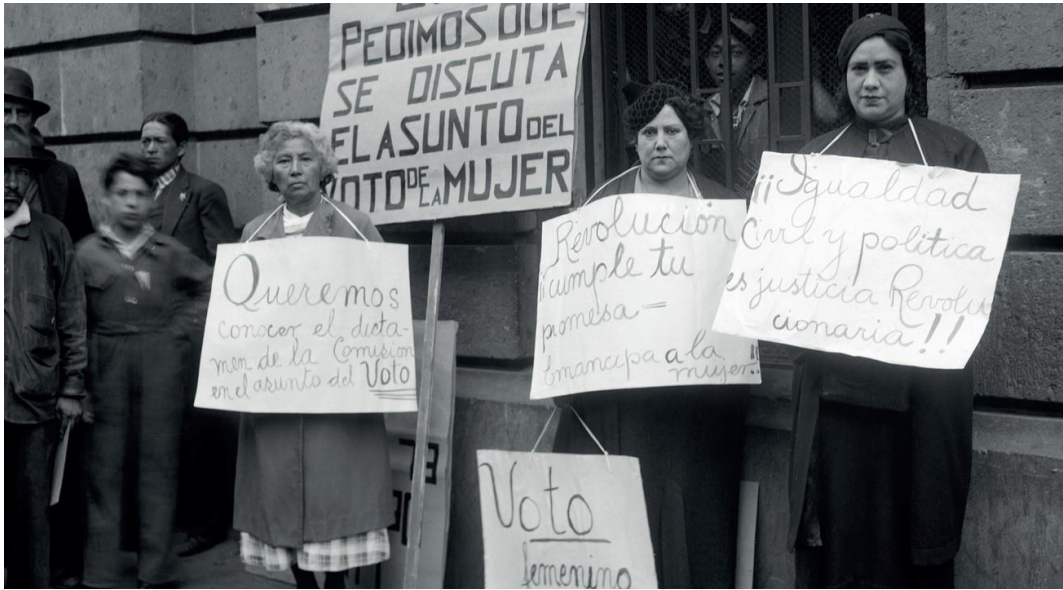 PEDIMOS QUE
SE DISCUTA
EL ASUNTO DEL
VOTO DE LA MUJER
Queremos
conocer el dicta-
men de la Comision
en el asunto del Voto
Revolución
¡¡cumple tu
promesa=
Emancipa a la
mujer!!
¡¡Igualdad
Civil y política
es justicia Revolu
cionaria!!
Voto
femenino